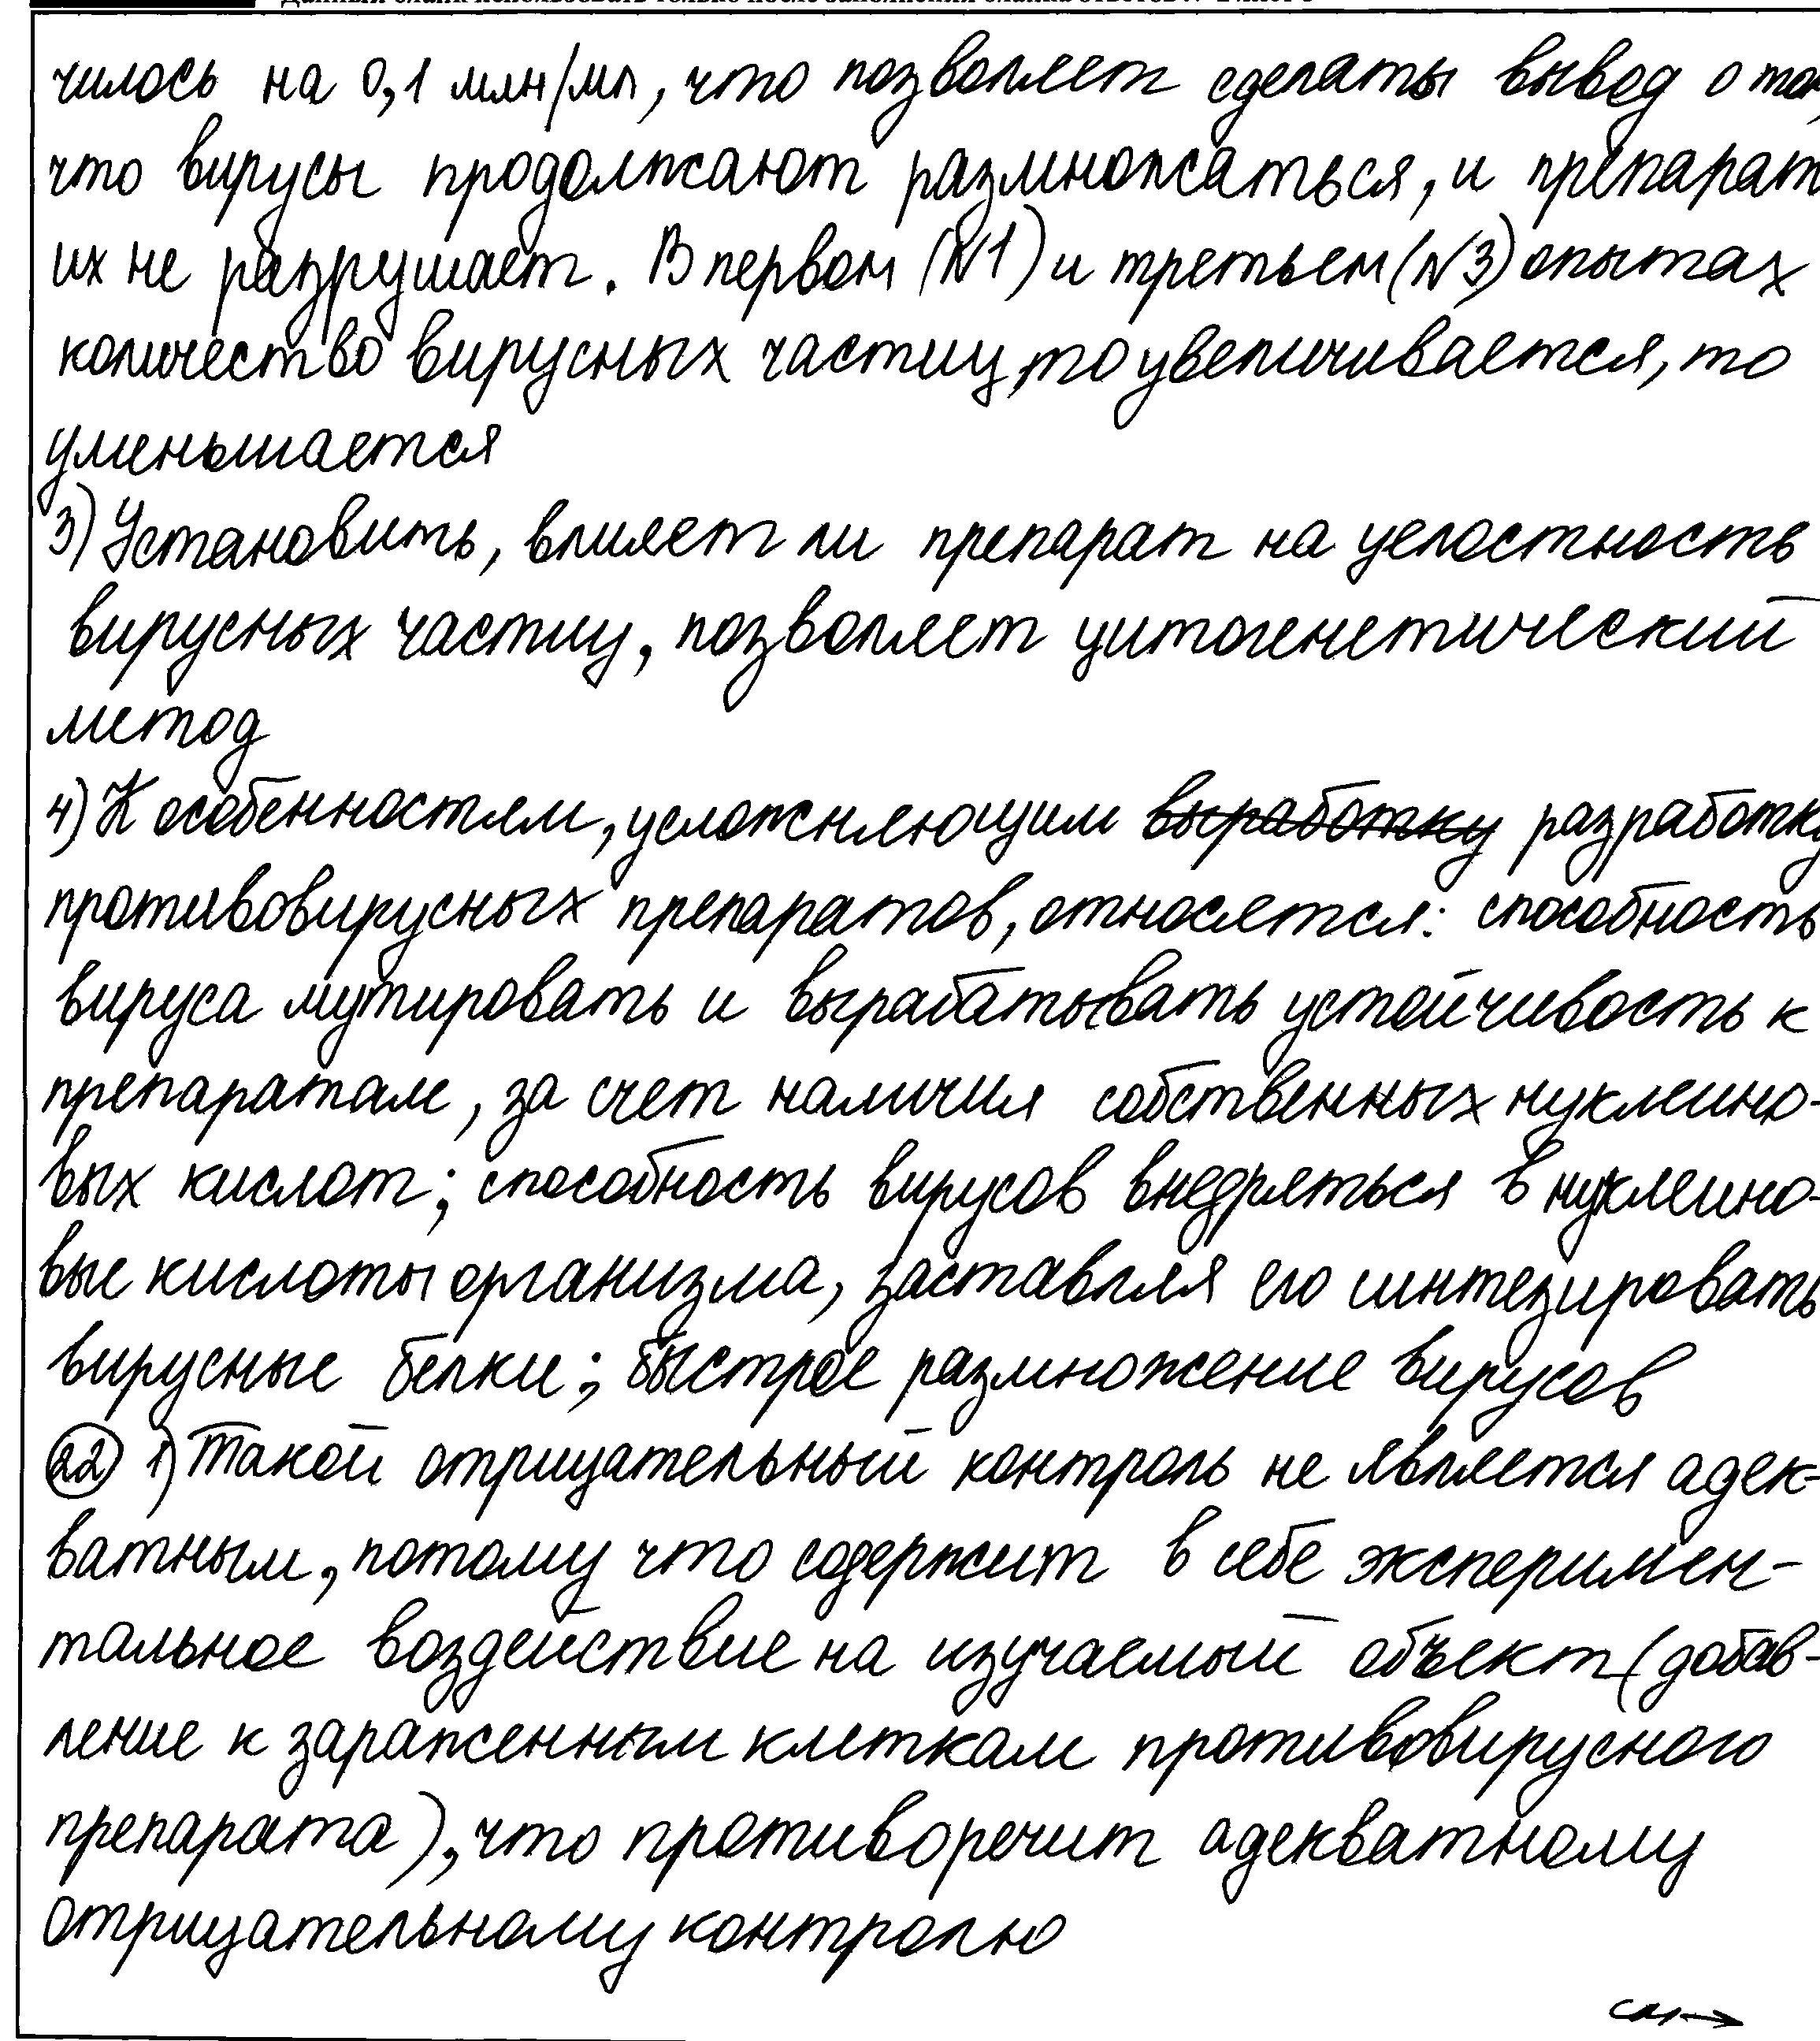 чилось на 0,1 млн/мл, что позволяет сделать вывод о том,
что вирусы продолжают размножаться, и препарат
их не разрушает. В первом (№1) и третьем (№3) опытах
количество вирусных частиц, то увеличивается, то
уменьшается
3) Установить, влияет ли препарат на целостность
вирусных частиц, позволяет цитогенетический
метод
4) К особенностям, усложняющим выработку разработку
противовирусных препаратов, относятся: способность
вируса мутировать и вырабатывать устойчивость к
препаратам, за счет наличия собственных нуклеино-
вых кислот; способность вирусов внедряться в нуклеино-
вые кислоты организма, заставляя его синтезировать
вирусные белки; быстрое размножение вирусов
22 1) Такой отрицательный контроль не является адек-
ватным, потому что содержит в себе эксперимен-
тальное воздействие на изучаемый объект (добав-
ление к зараженным клеткам противовирусного
препарата), что противоречит адекватному
отрицательному контролю
см→